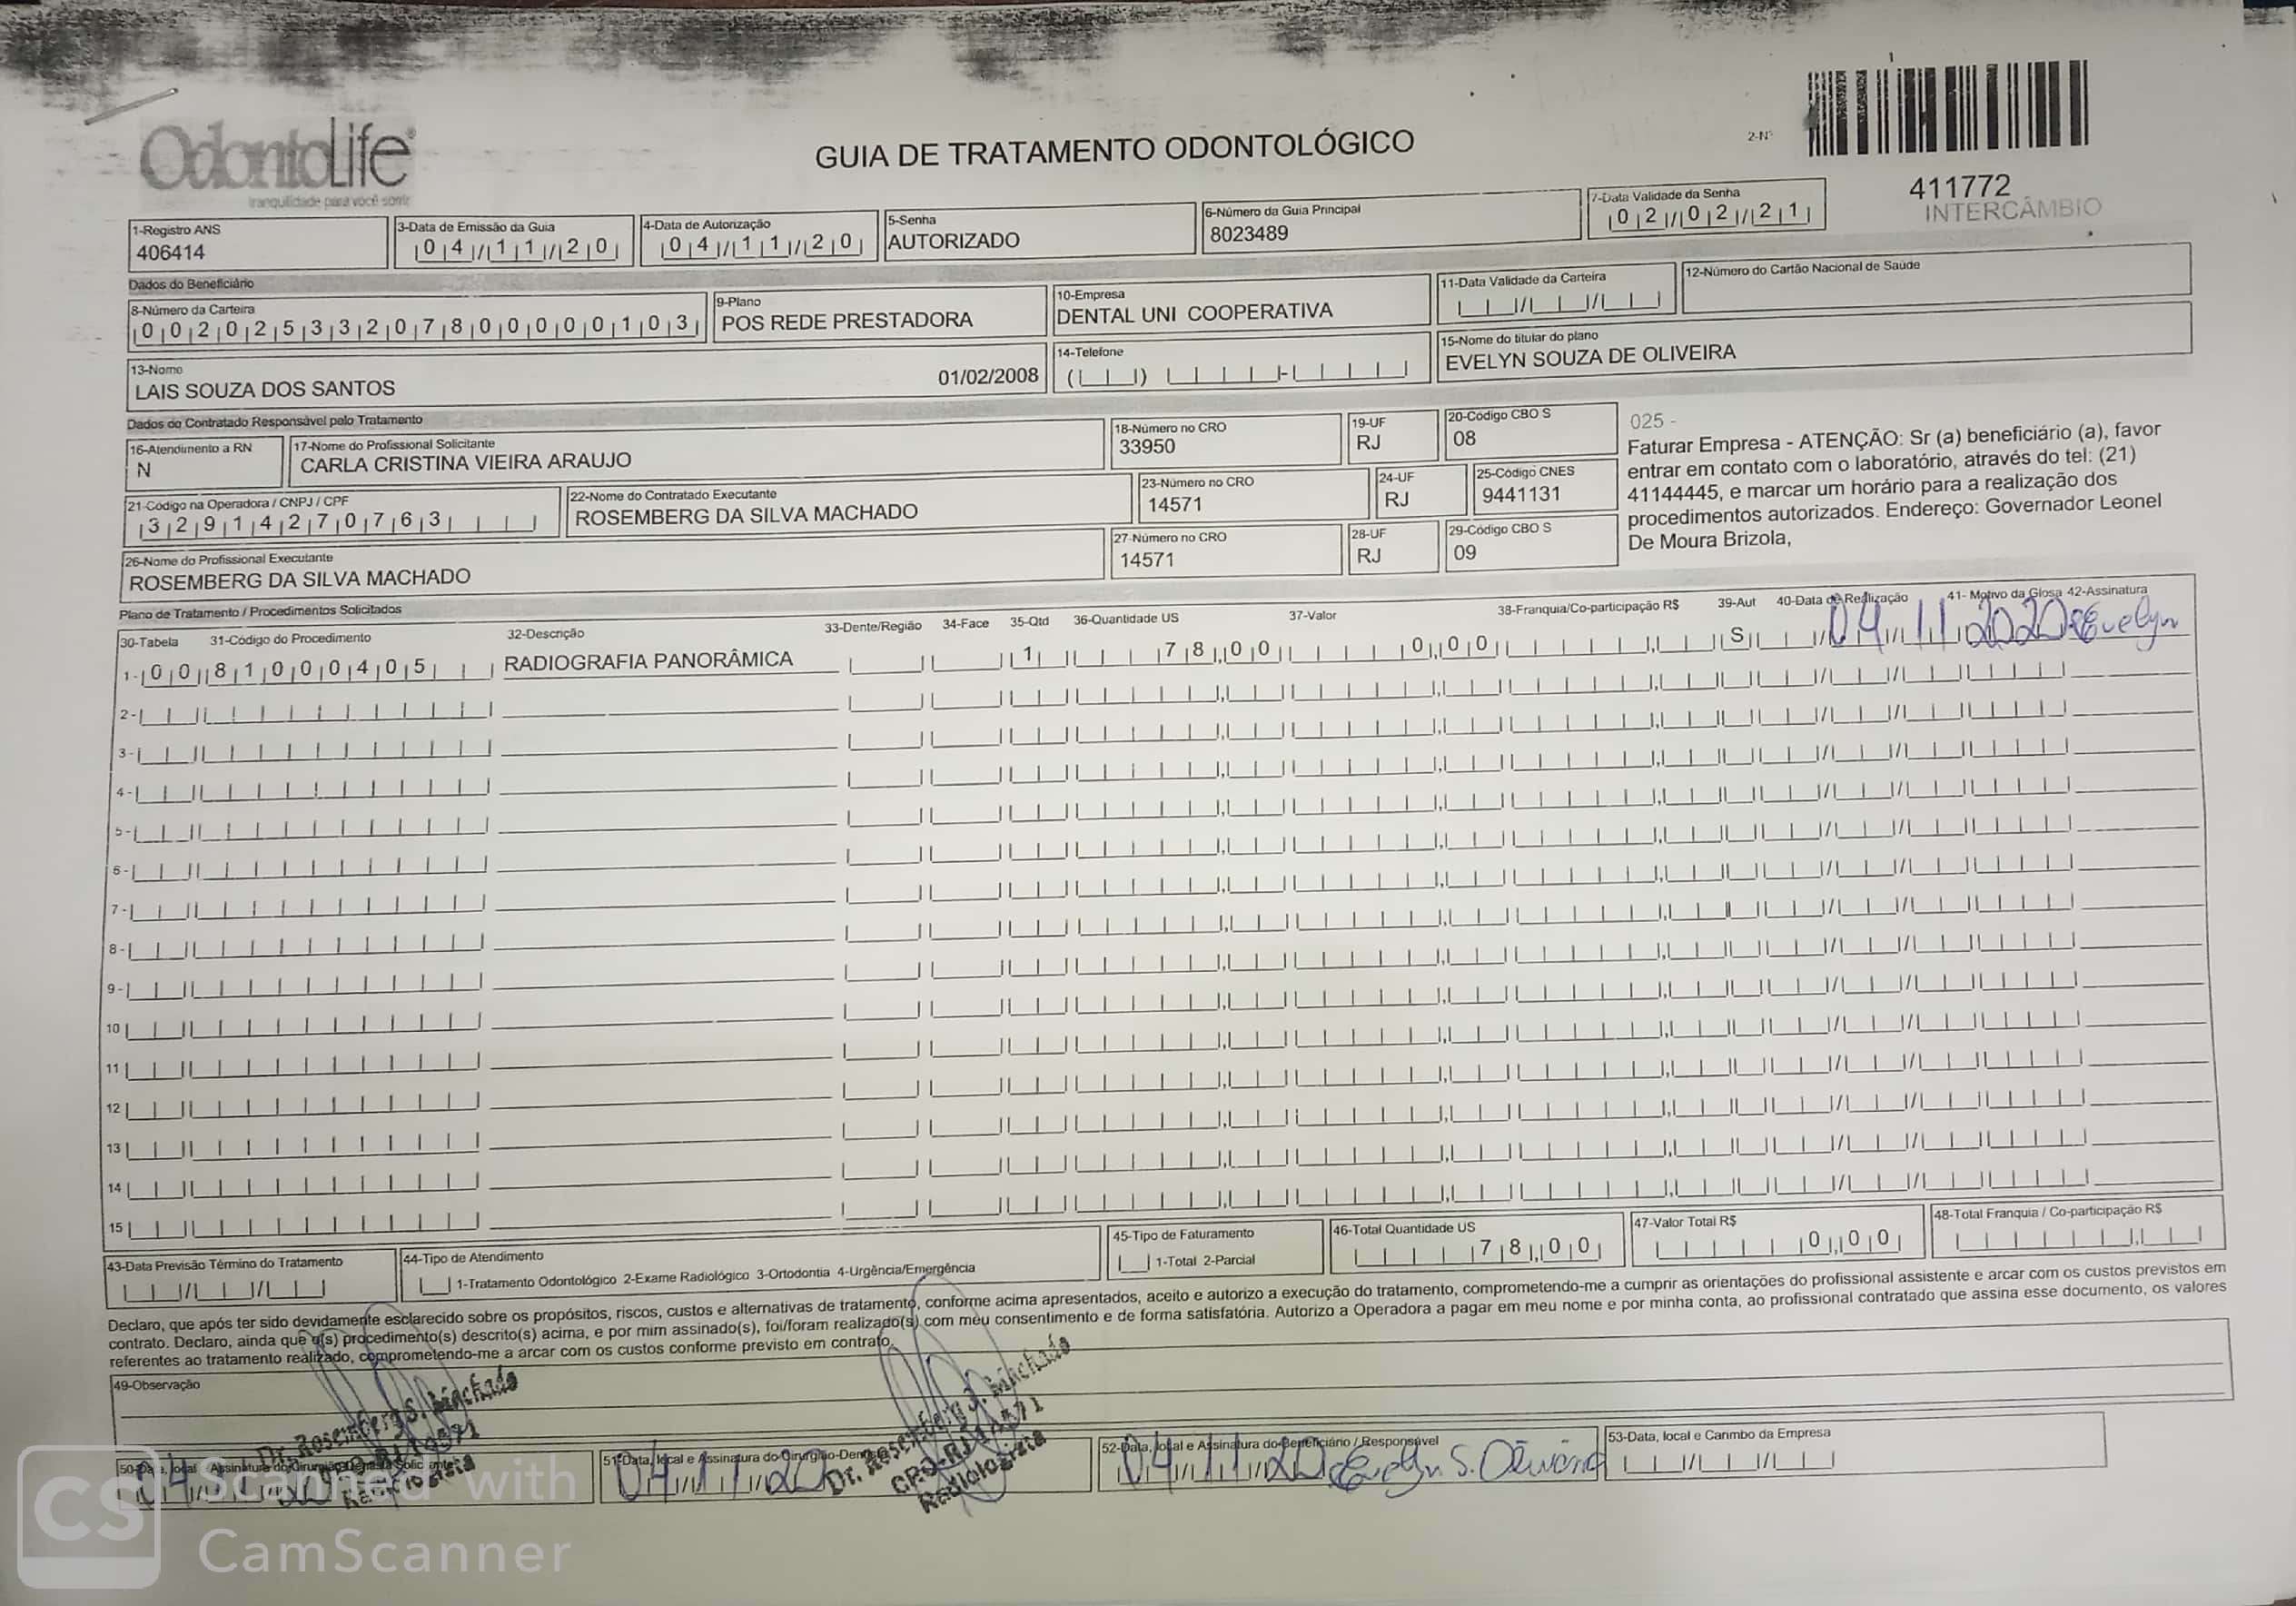 OdontoLife
tranquilidade para você sorrir
GUIA DE TRATAMENTO ODONTOLÓGICO
2-Nº
411772
INTERCÂMBIO
1-Registro ANS
406414
3-Data de Emissão da Guia
04/11/20
4-Data de Autorização
04/11/20
5-Senha
AUTORIZADO
6-Número da Guia Principal
8023489
7-Data Validade da Senha
02/02/21
Dados do Beneficiário
8-Número da Carteira
00202533207800000103
9-Plano
POS REDE PRESTADORA
10-Empresa
DENTAL UNI COOPERATIVA
11-Data Validade da Carteira
12-Número do Cartão Nacional de Saúde
13-Nome
LAIS SOUZA DOS SANTOS 01/02/2008
14-Telefone
15-Nome do titular do plano
EVELYN SOUZA DE OLIVEIRA
Dados do Contratado Responsável pelo Tratamento
16-Atendimento a RN
N
17-Nome do Profissional Solicitante
CARLA CRISTINA VIEIRA ARAUJO
18-Número no CRO
33950
19-UF
RJ
20-Código CBO S
08
025 -
Faturar Empresa - ATENÇÃO: Sr (a) beneficiário (a), favor
entrar em contato com o laboratório, através do tel: (21)
41144445, e marcar um horário para a realização dos
procedimentos autorizados. Endereço: Governador Leonel
De Moura Brizola,
21-Código na Operadora / CNPJ / CPF
32914270763
22-Nome do Contratado Executante
ROSEMBERG DA SILVA MACHADO
23-Número no CRO
14571
24-UF
RJ
25-Código CNES
9441131
26-Nome do Profissional Executante
ROSEMBERG DA SILVA MACHADO
27-Número no CRO
14571
28-UF
RJ
29-Código CBO S
09
Plano de Tratamento / Procedimentos Solicitados
30-Tabela 31-Código do Procedimento 32-Descrição 33-Dente/Região 34-Face 35-Qtd 36-Quantidade US 37-Valor 38-Franquia/Co-participação R$ 39-Aut 40-Data de Realização 41- Motivo da Glosa 42-Assinatura
1- 00 81000405 RADIOGRAFIA PANORÂMICA 1 78,00 0,00 S 04/11/2020 Evelyn
2-
3-
4-
5-
6-
7-
8-
9-
10
11
12
13
14
15
43-Data Previsão Término do Tratamento
44-Tipo de Atendimento
1-Tratamento Odontológico 2-Exame Radiológico 3-Ortodontia 4-Urgência/Emergência
45-Tipo de Faturamento
1-Total 2-Parcial
46-Total Quantidade US
78,00
47-Valor Total R$
0,00
48-Total Franquia / Co-participação R$
Declaro, que após ter sido devidamente esclarecido sobre os propósitos, riscos, custos e alternativas de tratamento, conforme acima apresentados, aceito e autorizo a execução do tratamento, comprometendo-me a cumprir as orientações do profissional assistente e arcar com os custos previstos em
contrato. Declaro, ainda que o(s) procedimento(s) descrito(s) acima, e por mim assinado(s), foi/foram realizado(s) com meu consentimento e de forma satisfatória. Autorizo a Operadora a pagar em meu nome e por minha conta, ao profissional contratado que assina esse documento, os valores
referentes ao tratamento realizado, comprometendo-me a arcar com os custos conforme previsto em contrato.
49-Observação
Dr. Rosemberg S. Machado
Radiologista
Dr. Rosemberg S. Machado
CRO-RJ 14571
Radiologista
50-Data, local e Assinatura do Cirurgião-Dentista Solicitante
04/11/20
51-Data, local e Assinatura do Cirurgião-Dentista
04/11/20
52-Data, local e Assinatura do Beneficiário / Responsável
04/11/20 Evelyn S. Oliveira
53-Data, local e Carimbo da Empresa
CS Scanned with
CamScanner